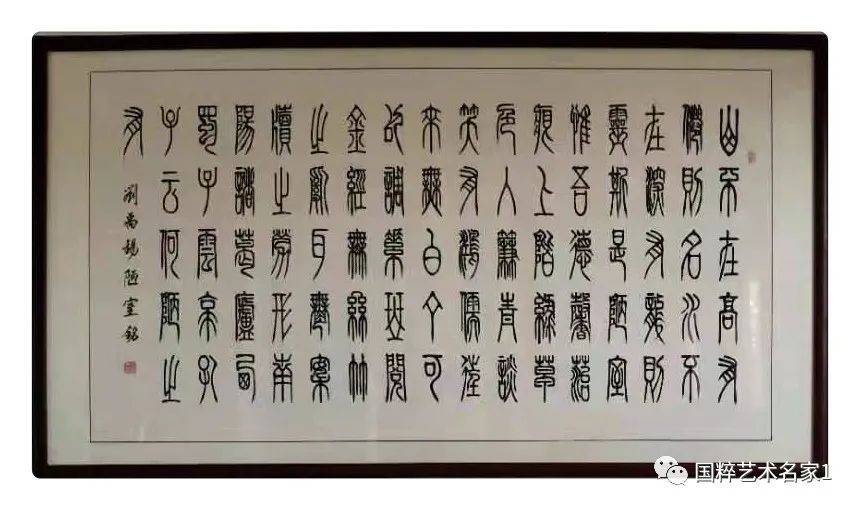 山不在高有
僊則名水不
在深有龍則
靈斯是陋室
惟吾德馨苔
痕上階綠草
色入簾青談
笑有鴻儒往
來無白丁可
以調素琴閱
金經無絲竹
之亂耳無案
牘之勞形南
陽諸葛廬西
蜀子雲亭孔
子云何陋之
有
劉禹錫陋室銘
国粹艺术名家1